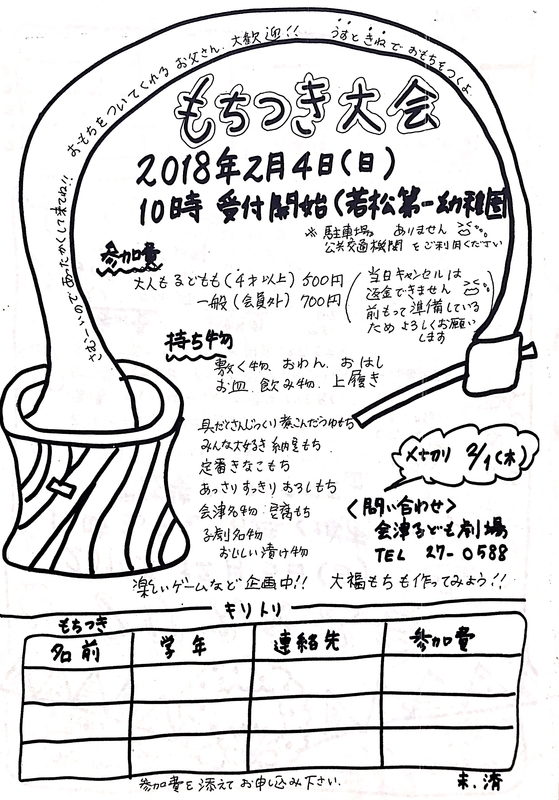 おもちをついてくれるお父さん、大歓迎!!
うすときねでおもちをつくよ
さむーいのであったかくして来てね!!
もちつき大会
2018年2月4日(日)
10時 受付開始(若松第一幼稚園
※ 駐車場 ありません
公共交通機関 をご利用ください
参加費
大人も子どもも(4才以上)500円
一般(会員外)700円
当日キャンセルは
返金できません
前もって準備している
ため よろしくお願い
します
持ち物
敷く物、おわん、おはし
お皿、飲み物、上履き
具だくさんじっくり煮こんだぞうにもち
みんな大好き 納豆もち
定番きなこもち
あっさりすっきり おろしもち
会津名物 豆腐もち
子劇名物
おいしい漬け物
〆切り 2/1(木)
<問い合わせ>
会津子ども劇場
TEL 27-0588
楽しいゲームなど企画中!! 大福もちも作ってみよう!!
キリトリ
もちつき
名前 学年 連絡先 参加費
参加費を添えてお申し込み下さい。
未、済